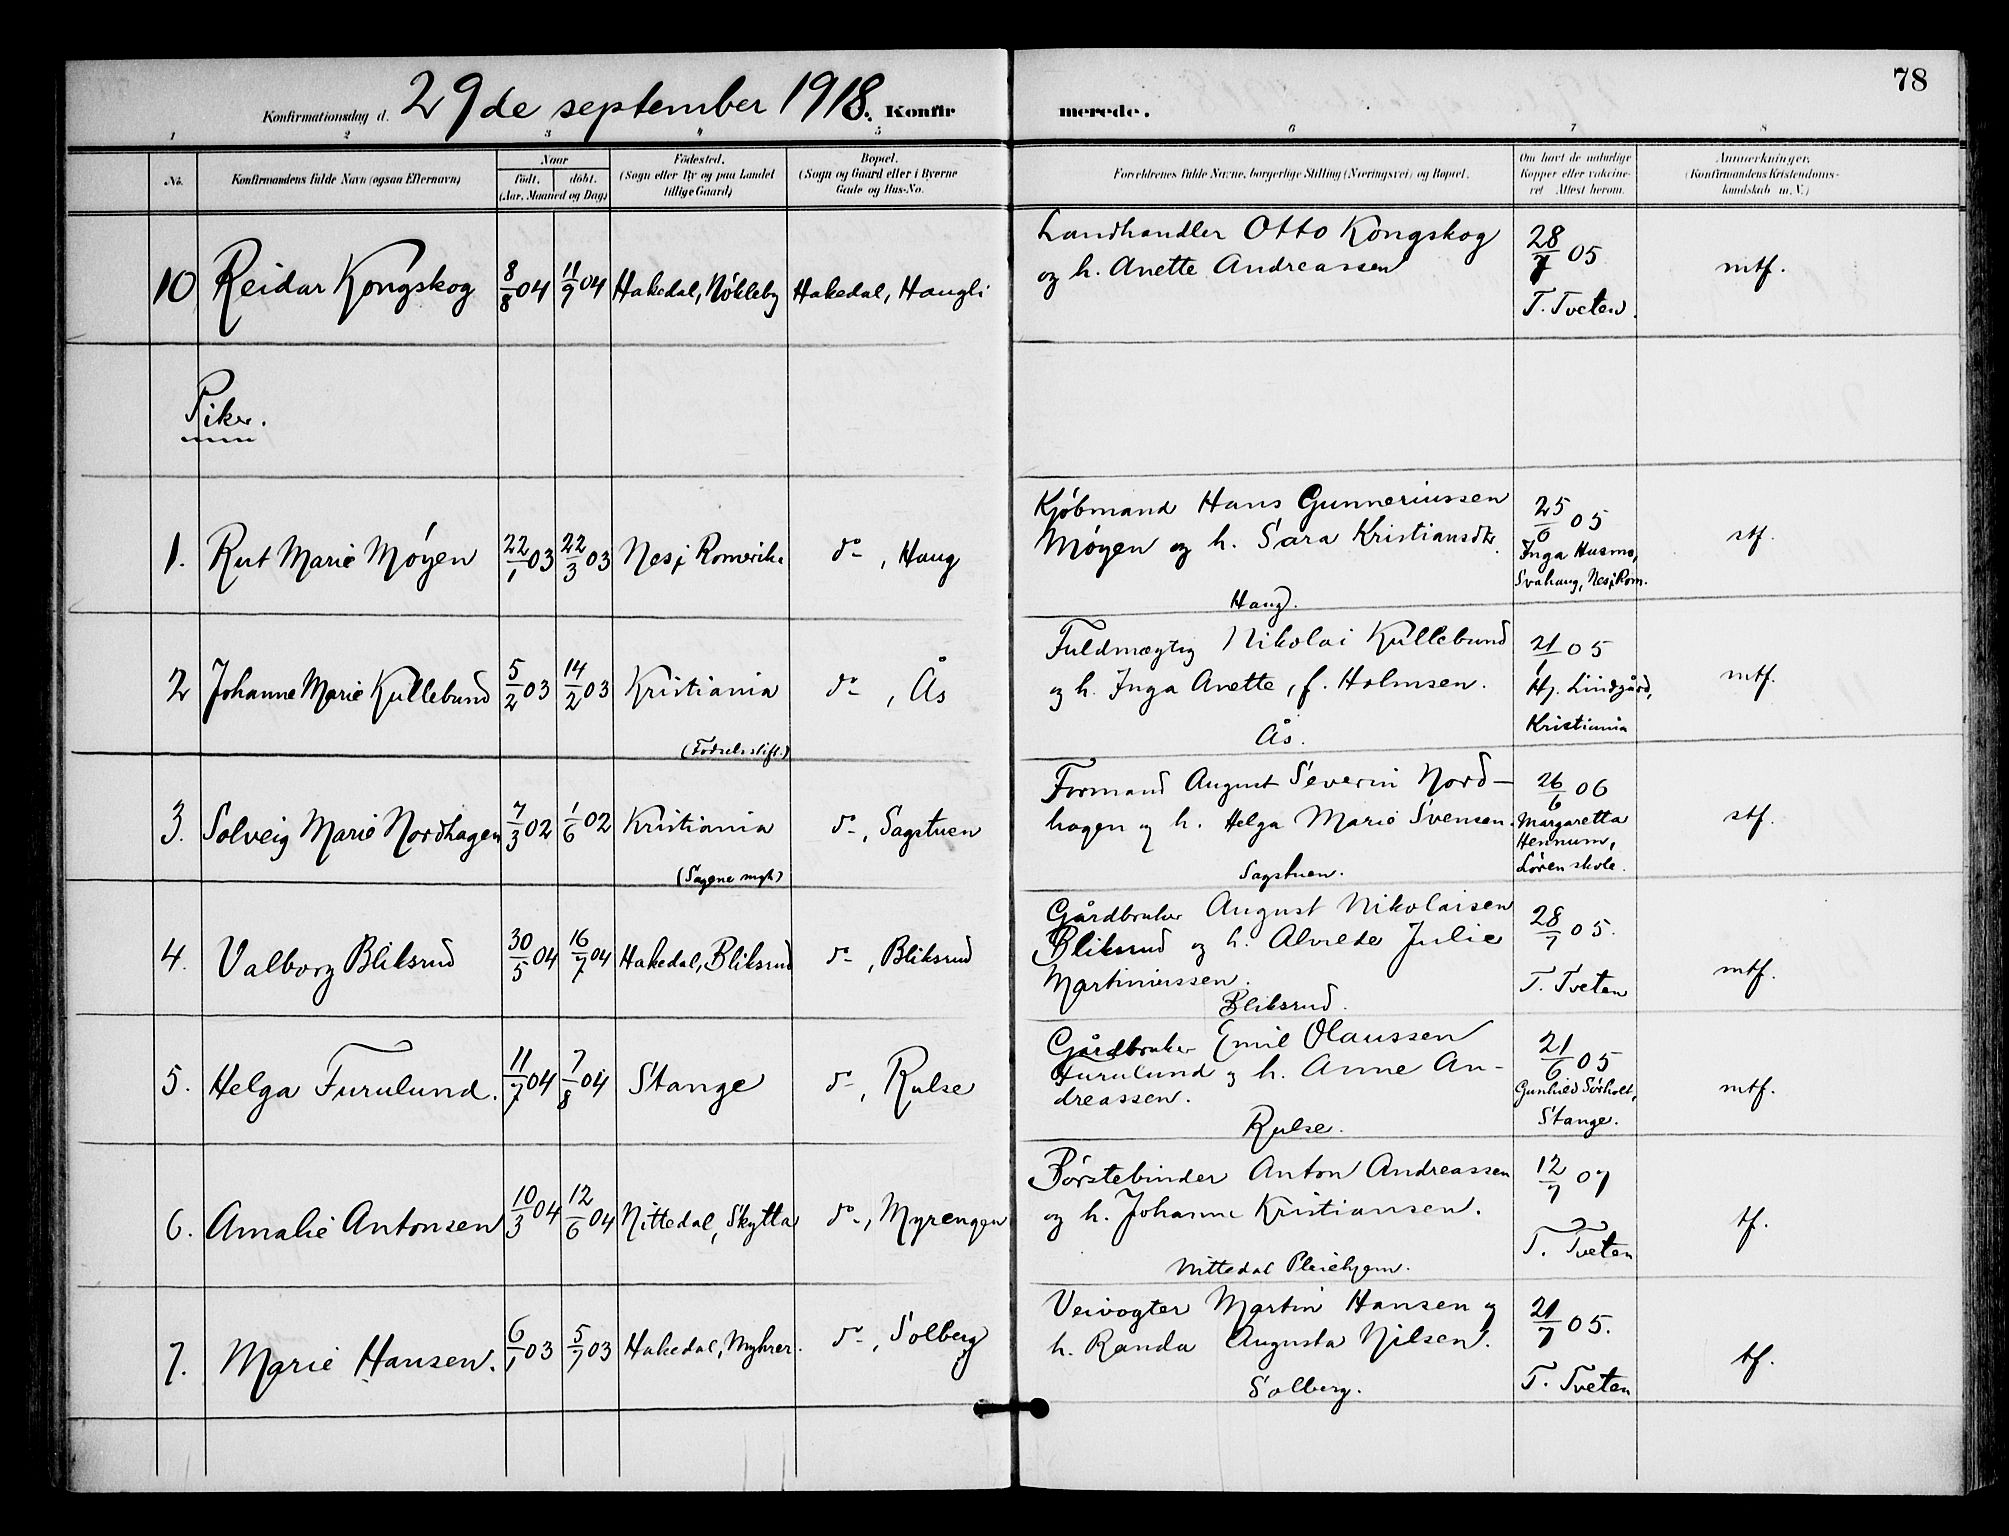 78
Konfirmationsdag d. 29de september 1918. Konfirmerede.
1 2 3 4 5 6 7 8
No. Konfirmandens fulde Navn (ogsaa Efternavn)
Naar
født. døbt.
(Aar, Maaned og Dag)
Fødested.
(Sogn eller By og paa Landet
tillige Gaard)
Bopæl.
(Sogn og Gaard eller i Byerne
Gade og Hus-No.
Forældrenes fulde Navne, borgerlige Stilling (Næringsvei) og Bopæl.
Om havt de naturlige
Kopper eller vakcine-
ret Attest herom.
Anmærkninger.
(Konfirmandens Kristendoms-
kundskab m. V.)
10 Reidar Kongskog 8/8 04 11/9 04 Hakedal, Nökleby Hakedal, Haugli
Landhandler Otto Kongskog
og h. Anette Andreassen
28/7 05
T. Tveten.
mtf.
Piker.
1. Rut Marie Møyen 22/1 03 22/3 03 Nes, Romerike do, Haug
Kjöbmand Hans Gunneriussen
Møyen og h. Sara Kristiansdtr.
Haug.
25/6 05
Inga Husmo,
Svahaug, Nes, Rom.
stf.
2 Johanne Marie Kullebund 5/2 03 14/2 03 Kristiania do, Ås
(Fødselsstift.)
Fuldmægtig Nikolai Kullebund
og h. Inga Anette, f. Holmsen.
Ås.
21/1 05
Hj. Lindgård,
Kristiania
mtf.
3. Solveig Marie Nordhagen 7/3 02 1/6 02 Kristiania do, Sagstuen
(Sagene mgh)
Formand August Severin Nord-
hagen og h. Helga Marie Svensen.
Sagstuen.
26/6 06
Margaretta
Hennum,
Lören skole.
stf.
4. Valborg Bliksrud 30/5 04 16/7 04 Hakedal, Bliksrud do, Bliksrud
Gårdbruker August Nikolaisen
Bliksrud og h. Alvilde Julie
Martiniussen.
Bliksrud.
28/7 05.
T. Tveten
mtf.
5. Helga Furulund. 11/7 04 7/8 04 Stange do, Rulse
Gårdbruker Emil Olaussen
Furulund og h. Anne An-
dreassen.
Rulse.
21/6 05
Gunhild Sörholt,
Stange.
mtf.
6. Amalie Antonsen 10/3 04 12/6 04 Nittedal, Skytta do, Myrengen
Börstebinder Anton Andreassen
og h. Johanne Kristiansen.
Nittedal Pleiehjem.
12/7 07
T. Tveten
tf.
7. Marie Hansen. 6/1 03 5/7 03 Hakedal, Myhrer. do, Solberg
Veivogter Martin Hansen og
h. Randa Augusta Nilsen.
Solberg.
21/7 05.
T. Tveten
tf.